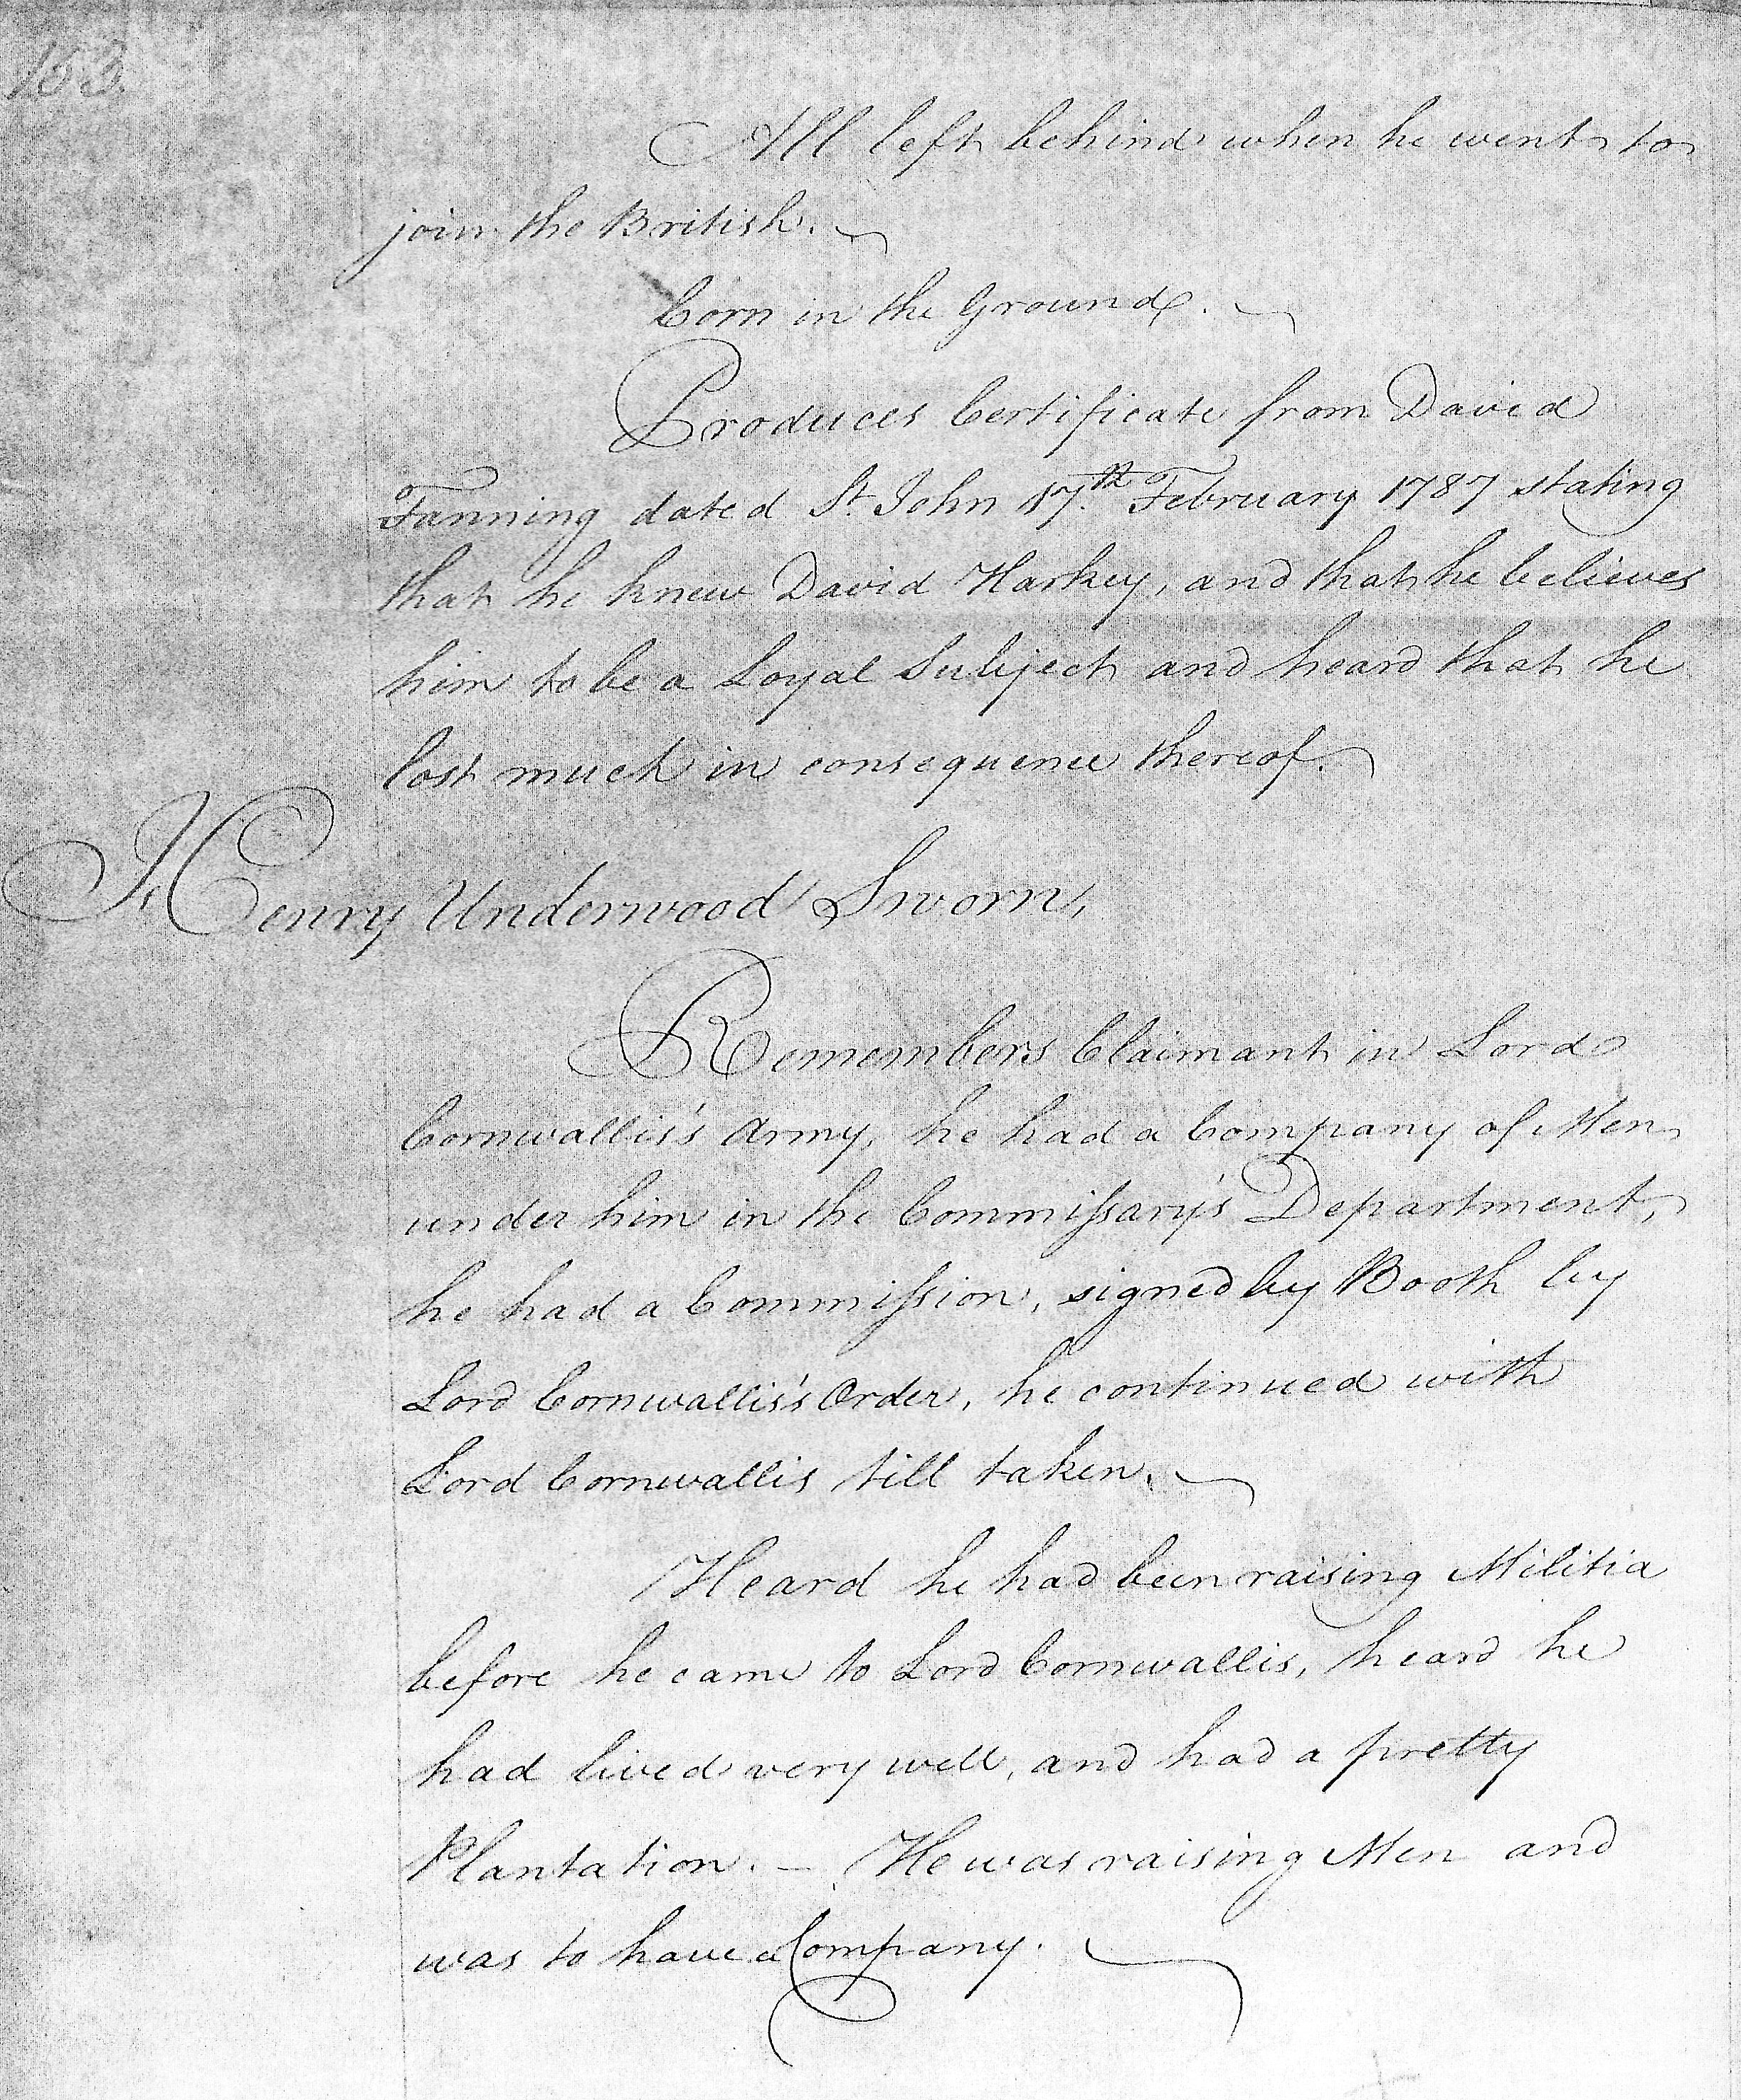 163.
All left behind when he went to
join the British.
Corn in the Ground.
Produces Certificate from David
Fanning dated St. John 17.th February 1787 stating
that he knew David Harkey, and that he believes
him to be a Loyal Subject and heard that he
lost much in consequence thereof.
Henry Underwood Sworn,
Remembers Claimant in Lord
Cornwallis's Army, he had a Company of Men
under him in the Commissary's Department,
he had a Commission, signed by Booth by
Lord Cornwallis's Order, he continued with
Lord Cornwallis till taken.
Heard he had been raising Militia
before he came to Lord Cornwallis, heard he
had lived very well, and had a pretty
Plantation. — He was raising Men and
was to have a Company.